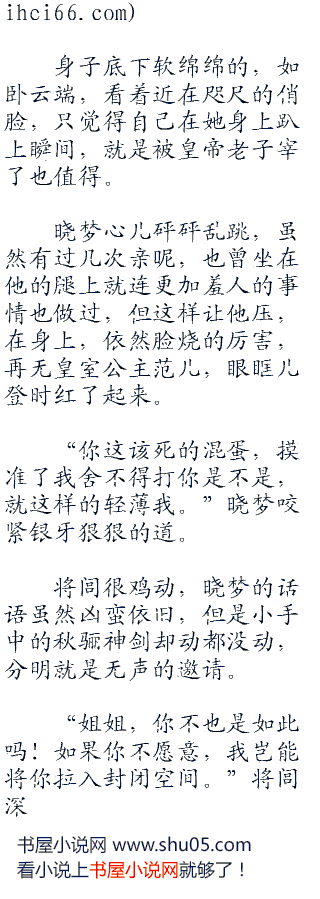 ihci66.com)
身子底下软绵绵的，如
卧云端，看着近在咫尺的俏
脸，只觉得自己在她身上趴
上瞬间，就是被皇帝老子宰
了也值得。
晓梦心儿砰砰乱跳，虽
然有过几次亲昵，也曾坐在
他的腿上就连更加羞人的事
情也做过，但这样让他压，
在身上，依然脸烧的厉害，
再无皇室公主范儿，眼眶儿
登时红了起来。
“你这该死的混蛋，摸
准了我舍不得打你是不是，
就这样的轻薄我。”晓梦咬
紧银牙狠狠的道。
将闾很鸡动，晓梦的话
语虽然凶蛮依旧，但是小手
中的秋骊神剑却动都没动，
分明就是无声的邀请。
“姐姐，你不也是如此
吗！如果你不愿意，我岂能
将你拉入封闭空间。”将闾
深
书屋小说网 www.shu05.com
看小说上书屋小说网就够了！